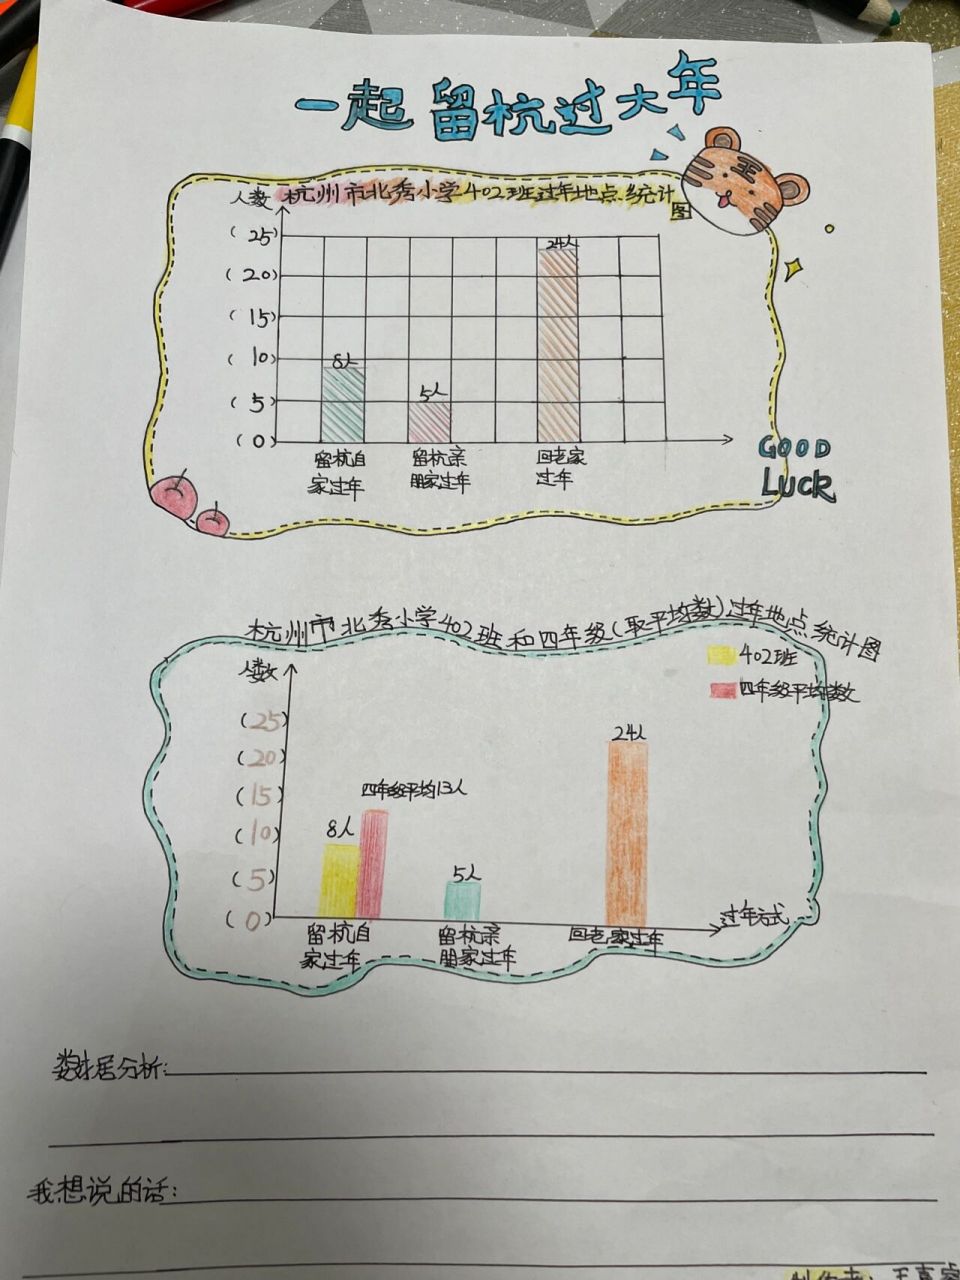 一起留杭过大年
人数 杭州市北秀小学402班过年地点统计图
(25)
(20)
(15)
(10)
(5)
(0)
24人
8人
5人
留杭自家过年
留杭亲朋家过年
回老家过年
GOOD
LUCK
杭州市北秀小学402班和四年级(取平均数)过年地点统计图
人数
402班
四年级平均数
(25)
(20)
(15)
(10)
(5)
(0)
24人
四年级平均13人
8人
5人
过年方式
留杭自家过年
留杭亲朋家过年
回老家过年
数据分析:
我想说的话: